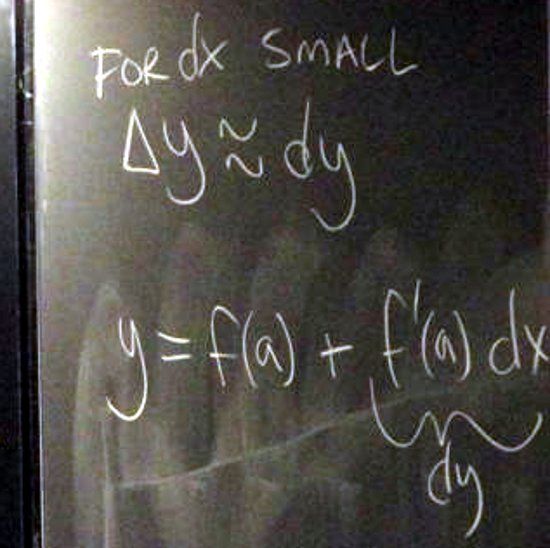 FOR dx SMALL
Δy ≈ dy
y = f(a) + f'(a) dx
dy